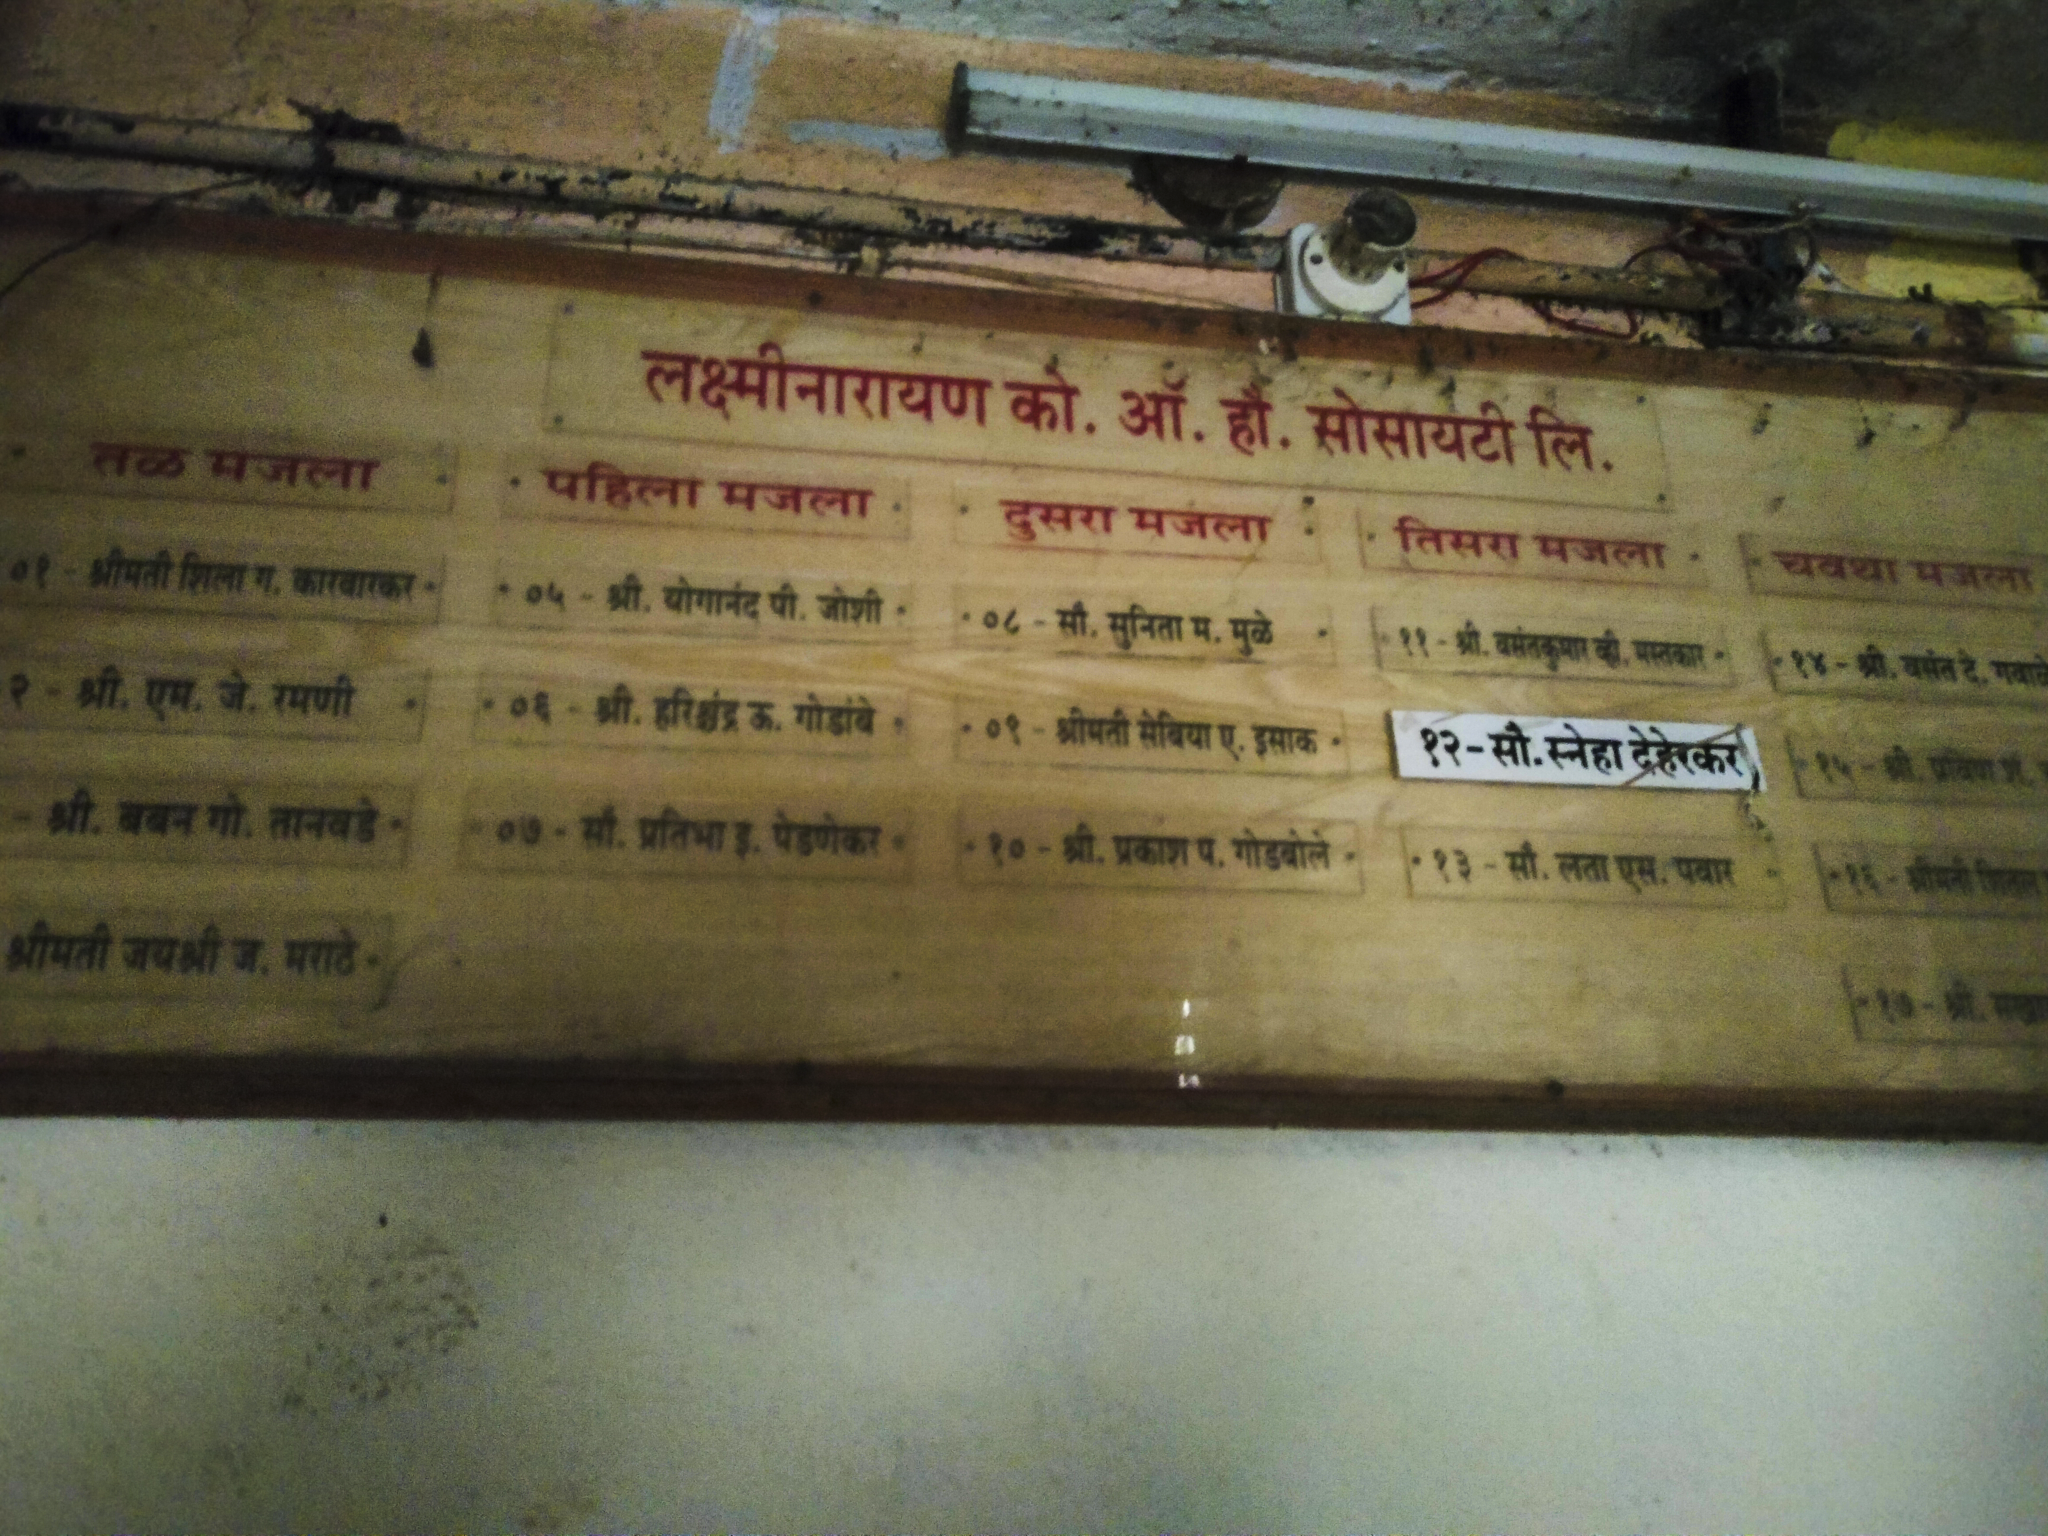 लक्ष्मीनारायण को. ऑ. हौ. सोसायटी लि.
तळ मजला
०१ - श्रीमती शिला ग. कारवारकर
२ - श्री. एम. जे. रमणी
- श्री. बबन गो. तानवडे
श्रीमती जयश्री ज. मराठे
पहिला मजला
०५ - श्री. योगानंद पी. जोशी
०६ - श्री. हरिश्चंद्र ऊ. गोडांबे
०७ - सौ. प्रतिभा इ. पेडणेकर
दुसरा मजला
०८ - सौ. सुनिता म. मुळे
०९ - श्रीमती सेबिया ए. इसाक
१० - श्री. प्रकाश प. गोडबोले
तिसरा मजला
११ - श्री. वसंतकुमार व्ही. मस्तकार
१२ - सौ. स्नेहा देहेरकर
१३ - सौ. लता एस. पवार
चवथा मजला
१४ - श्री. वसंत दे.
१५ - श्री.
१६ - श्रीमती शितल
१७ - श्री.